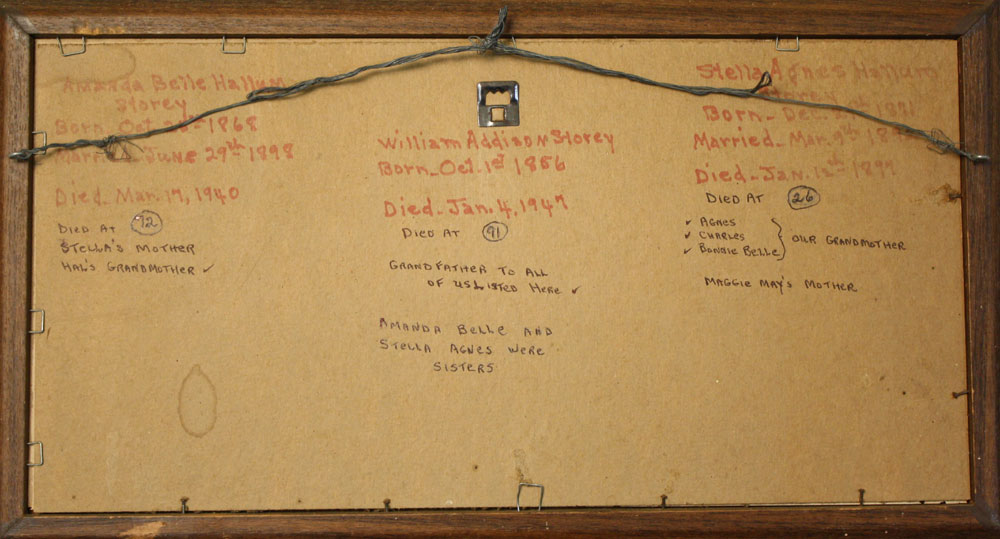 Amanda Belle Hallum
Storey
Born Oct. 1868
June 29th 1898
Died Mar. 17, 1940
DIED AT 72
STELLA'S MOTHER
HAL'S GRANDMOTHER ✓
William Addison Storey
Born Oct. 1st 1856
Died Jan. 4, 1947
DIED AT 91
GRANDFATHER TO ALL
OF US LISTED HERE ✓
AMANDA BELLE AND
STELLA AGNES WERE
SISTERS
Stella Agnes Hallum
Storey
Born Dec.
Married Mar. 9th
Died Jan. 12th
DIED AT 26
✓ AGNES
✓ CHARLES
✓ BONNIE BELLE
OUR GRANDMOTHER
MAGGIE MAY'S MOTHER